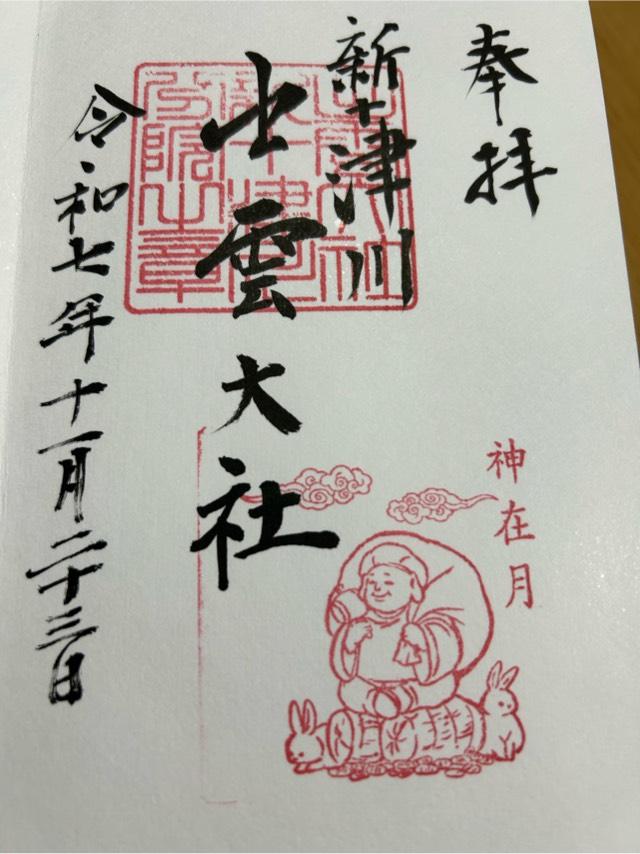 奉拝
新十津川
出雲大社
令和七年十一月二十三日
神在月